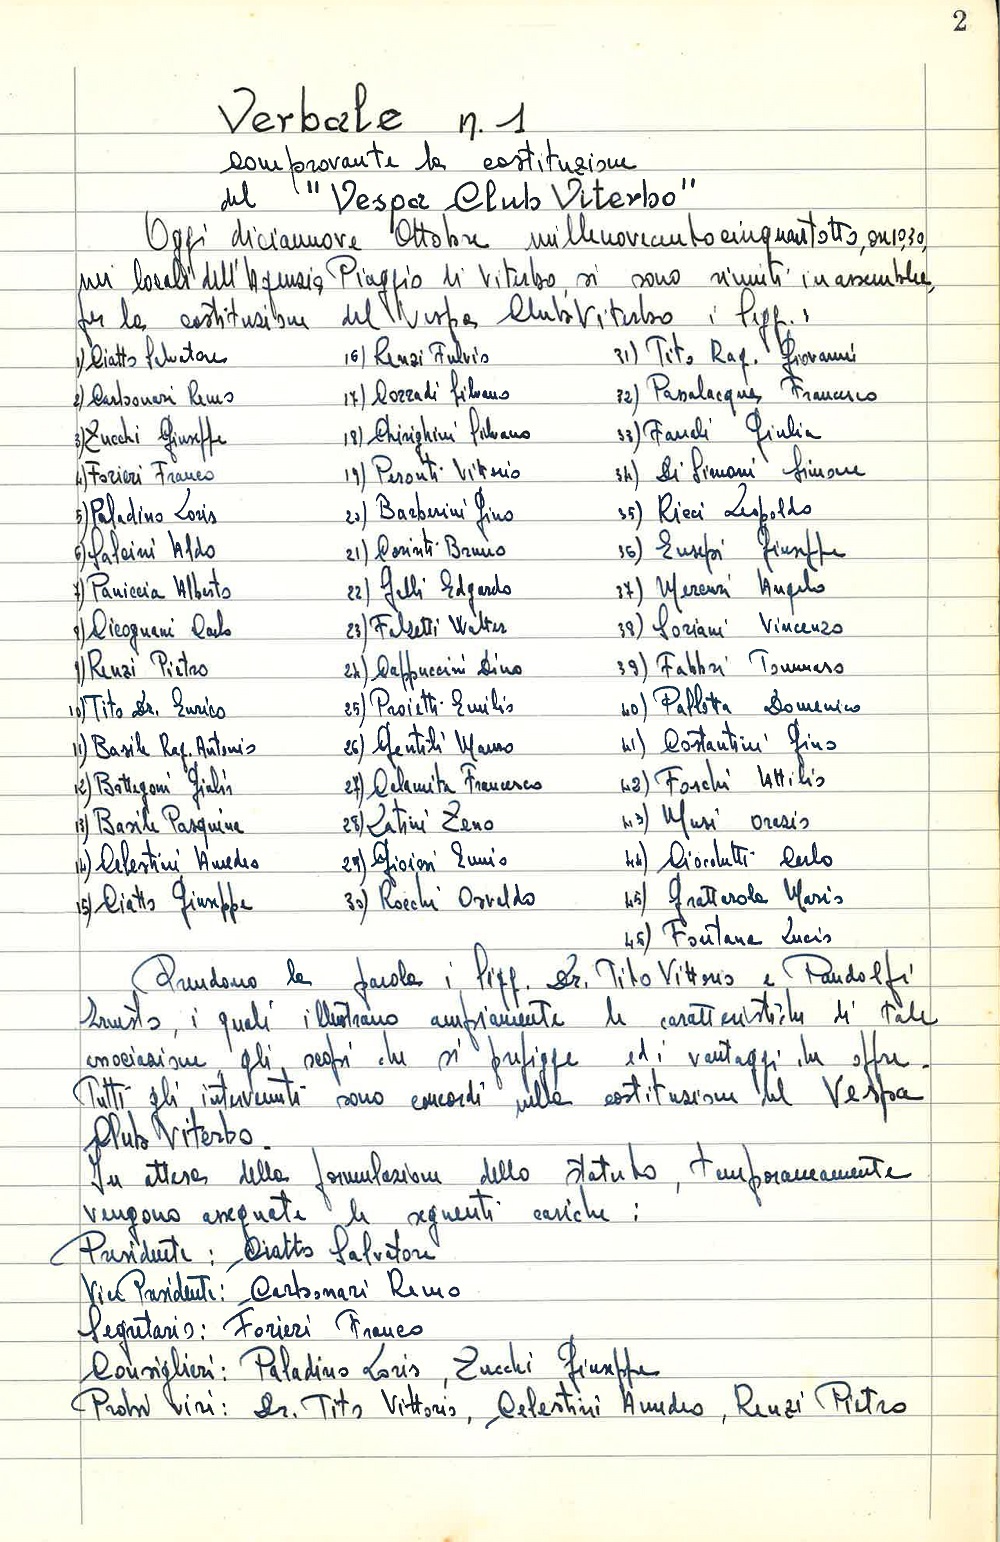 2
Verbale n. 1
comprovante la costituzione
del "Vespa Club Viterbo"
Oggi diciannove Ottobre millenovecentocinquantotto, ore 10,30,
nei locali dell'Agenzia Piaggio di Viterbo, si sono riuniti in assemblea,
per la costituzione del Vespa Club Viterbo i Sigg.:
1) Ciatto Salvatore 16) Renzi Fulvio 31) Tito Rag. Giovanni
2) Carbonari Remo 17) Corradi Silvano 32) Passalacqua Francesco
3) Zucchi Giuseppe 18) Chirighini Silvano 33) Fauli Giulia
4) Forieri Franco 19) Peronti Vittorio 34) Di Simoni Simone
5) Paladino Loris 20) Barberini Gino 35) Ricci Leopoldo
6) Salcini Aldo 21) Corinti Bruno 36) Eusepi Giuseppe
7) Paniccia Alberto 22) Gelli Edgardo 37) Mercuri Angelo
8) Cicognani Carlo 23) Falzetti Walter 38) Soriani Vincenzo
9) Renzi Pietro 24) Cappuccini Dino 39) Fabbri Tommaso
10) Tito Dr. Enrico 25) Proietti Emilio 40) Pallotta Domenico
11) Basile Rag. Antonio 26) Gentili Mauro 41) Costantini Gino
12) Bottegoni Giulio 27) Calamita Francesco 42) Foschi Attilio
13) Basile Pasquina 28) Latini Zeno 43) Musi Orazio
14) Celestini Amedeo 29) Gioiosi Ennio 44) Ciocchetti Carlo
15) Ciatto Giuseppe 30) Rocchi Osvaldo 45) Grattarola Mario
46) Fontana Lucio
Prendono la parola i Sigg. Dr. Tito Vittorio e Pandolfi
Ernesto, i quali illustrano ampiamente le caratteristiche di tale
associazione, gli scopi che si prefigge ed i vantaggi che offre.
Tutti gli intervenuti sono concordi nella costituzione del Vespa
Club Viterbo.
In attesa della formulazione dello statuto, temporaneamente
vengono assegnate le seguenti cariche:
Presidente: Ciatto Salvatore
Vice Presidente: Carbonari Remo
Segretario: Forieri Franco
Consiglieri: Paladino Loris, Zucchi Giuseppe
Probi viri: Dr. Tito Vittorio, Celestini Amedeo, Renzi Pietro